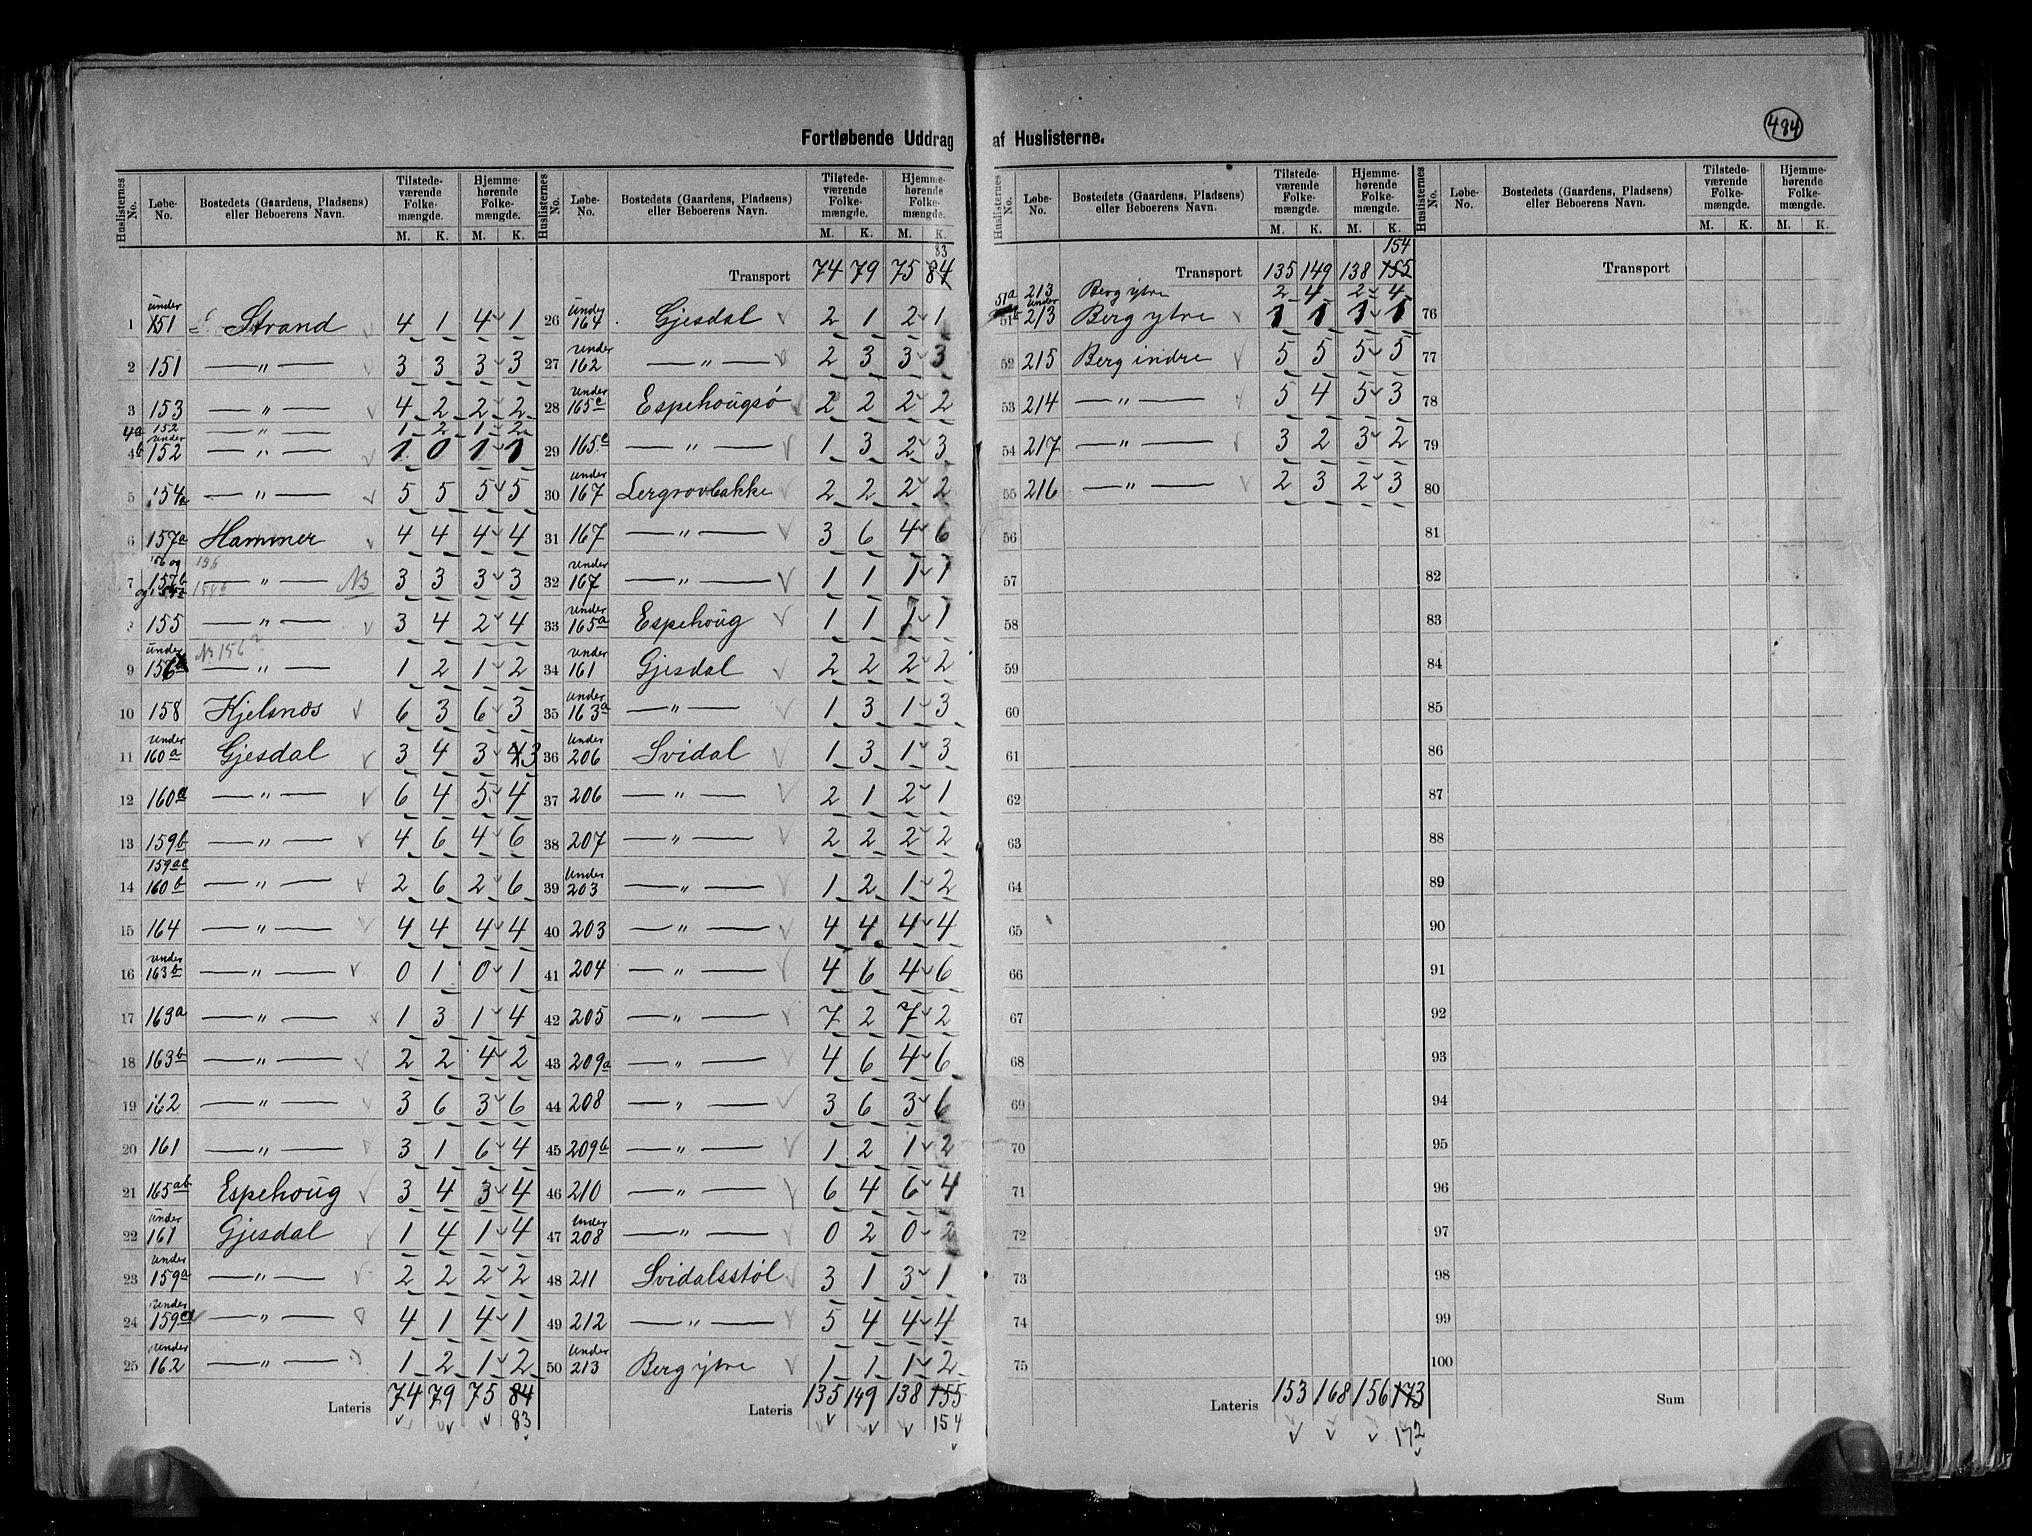 484
Fortløbende Uddrag af Huslisterne.
Huslisternes No. | Løbe-No. | Bostedets (Gaardens, Pladsens) eller Beboerens Navn. | Tilstedeværende Folkemængde. M. K. | Hjemmehørende Folkemængde. M. K.
1 under 151 Strand 4 1 4 1
2 151 —„— 3 3 3 3
3 153 —„— 4 2 2 2
4a 152 —„— 1 2 1 2
4b under 152 —„— 1 0 1 1
5 154a —„— 5 5 5 5
6 157a Hammer 4 4 4 4
7 156 og 157b og 154b —„— NB 3 3 3 3
156
154b
8 155 —„— 3 4 2 4
No 156?
9 under 156 —„— 1 2 1 2
10 158 Hjelsnæs 6 3 6 3
11 under 160a Gjesdal 3 4 3 4 3
12 160a —„— 6 4 5 4
13 159b —„— 4 6 4 6
14 159ac 160b —„— 2 6 2 6
15 164 —„— 4 4 4 4
16 under 163b —„— 0 1 0 1
17 163a —„— 1 3 1 4
18 163b —„— 2 2 4 2
19 162 —„— 3 6 3 6
20 161 —„— 3 1 6 4
21 165ab Espehoug 3 4 3 4
22 under 161 Gjesdal 1 4 1 4
23 under 159a —„— 2 2 2 2
24 under 159 —„— 4 1 4 1
25 under 162 —„— 1 2 1 2
Lateris 74 79 75 84
83
Huslisternes No. | Løbe-No. | Bostedets (Gaardens, Pladsens) eller Beboerens Navn. | Tilstedeværende Folkemængde. M. K. | Hjemmehørende Folkemængde. M. K.
83
Transport 74 79 75 84
26 under 164 Gjesdal 2 1 2 1
27 under 162 —„— 2 3 3 3
28 under 165c Espehougsø 2 2 2 2
29 165c —„— 1 3 2 3
30 under 167 Lergrovbakke 2 2 2 2
31 167 —„— 3 6 4 6
32 under 167 —„— 1 1 1 1
33 under 165a Espehoug 1 1 1 1
34 under 161 Gjesdal 2 2 2 2
35 under 163a —„— 1 3 1 3
36 under 206 Svidal 1 3 1 3
37 206 —„— 2 1 2 1
38 207 —„— 2 2 2 2
39 under 203 —„— 1 2 1 2
40 203 —„— 4 4 4 4
41 204 —„— 4 6 4 6
42 205 —„— 7 2 7 2
43 209a —„— 4 6 4 6
44 208 —„— 3 6 3 6
45 209b —„— 1 2 1 2
46 210 —„— 6 4 6 4
47 under 208 —„— 0 2 0 2
48 211 Svidalsstøl 3 1 3 1
49 212 —„— 5 4 4 4
50 under 213 Berg ytre 1 1 1 2
Lateris 135 149 138 155
154
Huslisternes No. | Løbe-No. | Bostedets (Gaardens, Pladsens) eller Beboerens Navn. | Tilstedeværende Folkemængde. M. K. | Hjemmehørende Folkemængde. M. K.
154
Transport 135 149 138 155
51a 213 Berg ytre 2 4 2 4
51b under 213 Berg ytre 1 1 1 1
52 215 Berg indre 5 5 5 5
53 214 —„— 5 4 5 3
54 217 —„— 3 2 3 2
55 216 —„— 2 3 2 3
56
57
58
59
60
61
62
63
64
65
66
67
68
69
70
71
72
73
74
75
Lateris 153 168 156 173
172
Huslisternes No. | Løbe-No. | Bostedets (Gaardens, Pladsens) eller Beboerens Navn. | Tilstedeværende Folkemængde. M. K. | Hjemmehørende Folkemængde. M. K.
Transport
76
77
78
79
80
81
82
83
84
85
86
87
88
89
90
91
92
93
94
95
96
97
98
99
100
Sum